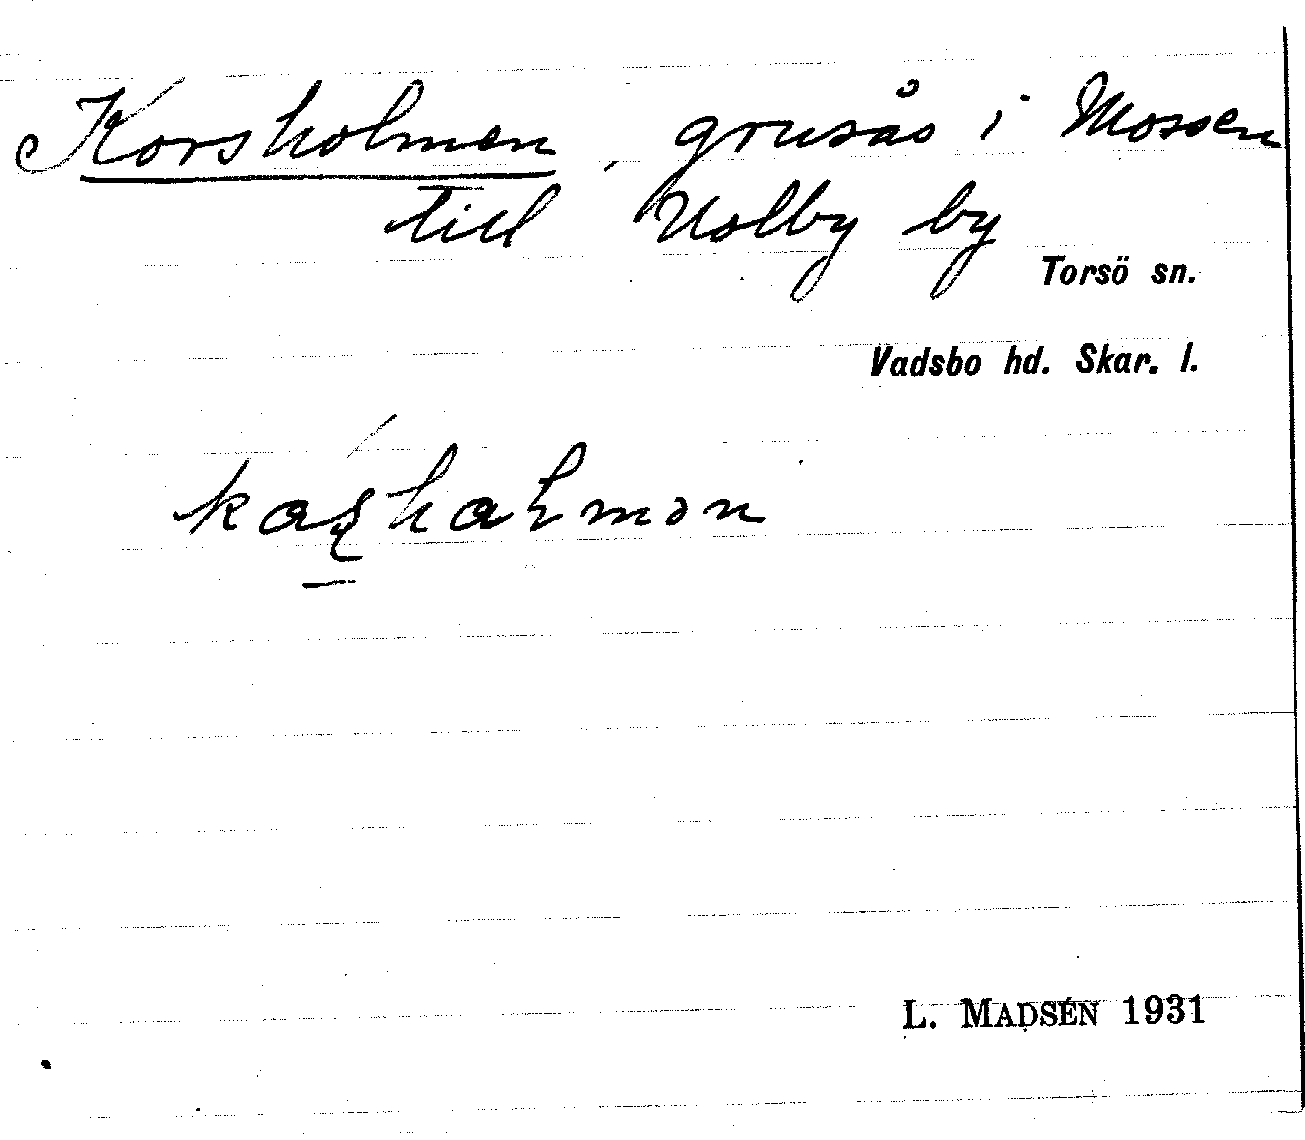 Korsholmen, grusås i Mossen
till Nolby by
Torsö sn.
Vadsbo hd. Skar. l.
L. MADSÉN 1931